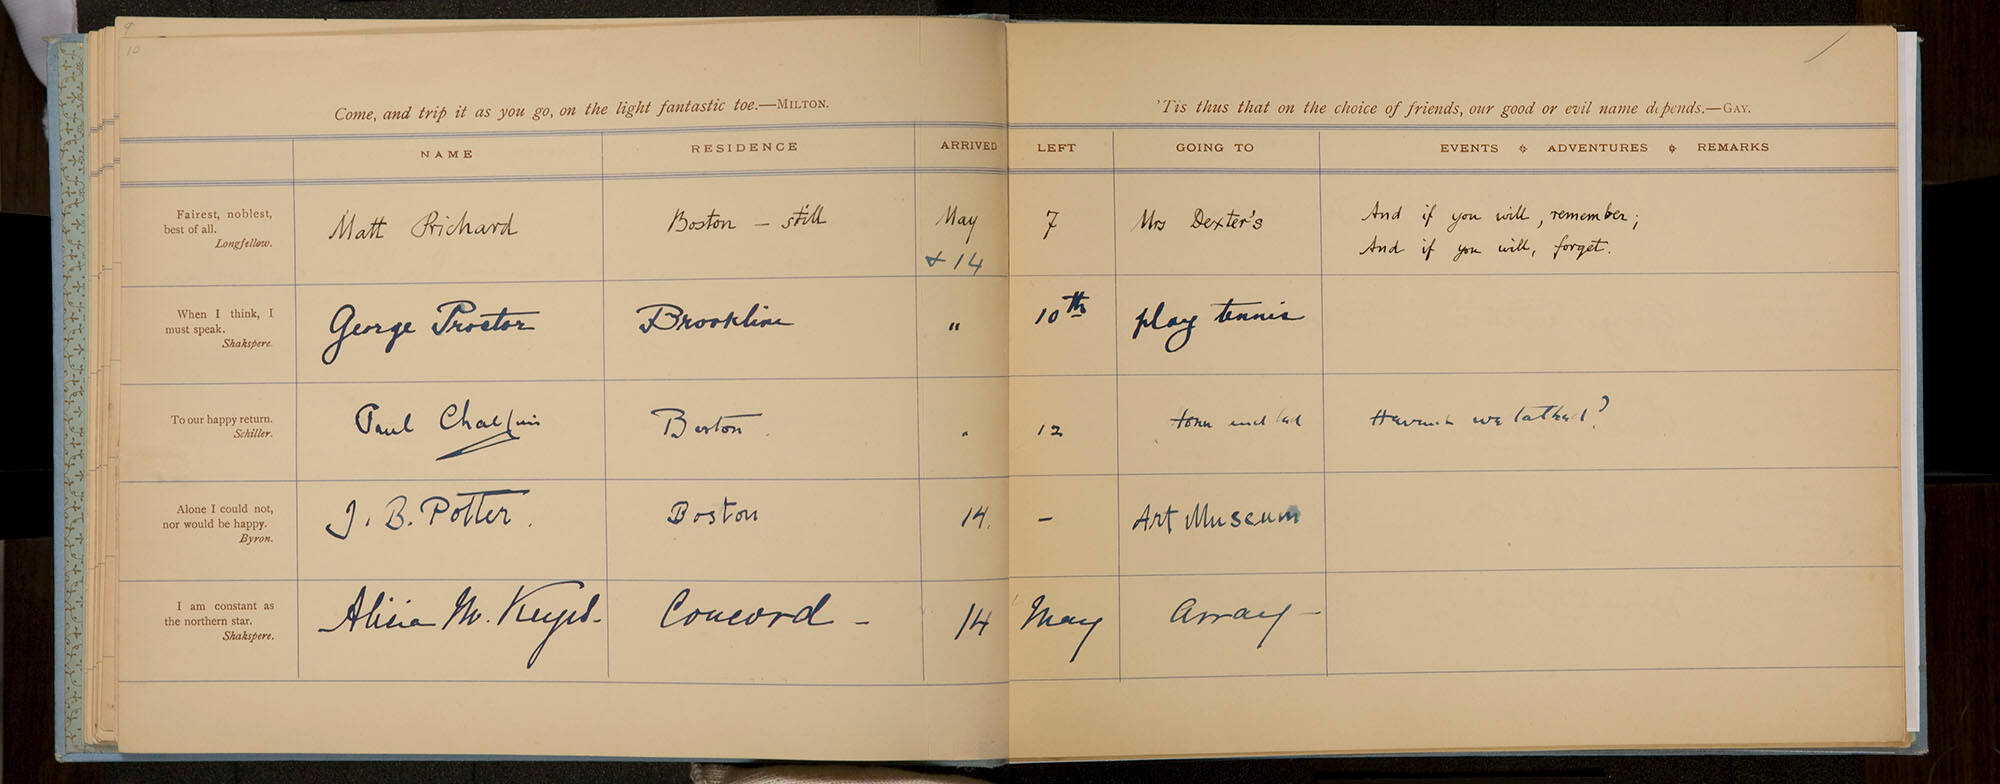 9
10
Come, and trip it as you go, on the light fantastic toe.—MILTON.
'Tis thus that on the choice of friends, our good or evil name depends.—GAY.
NAME RESIDENCE ARRIVED LEFT GOING TO EVENTS ADVENTURES REMARKS
Fairest, noblest,
best of all.
Longfellow.
Matt Prichard Boston – still May 7 Mrs Dexter's And if you will, remember;
& 14 And if you will, forget.
When I think, I
must speak.
Shakspere.
George Proctor Brookline " 10th play tennis
To our happy return.
Schiller.
Paul Chalfin Boston " 12 we talked?
Alone I could not,
nor would be happy.
Byron.
J. B. Potter. Boston 14. – Art Museum
I am constant as
the northern star.
Shakspere.
Alicia M. Keyes. Concord – 14 May Array –